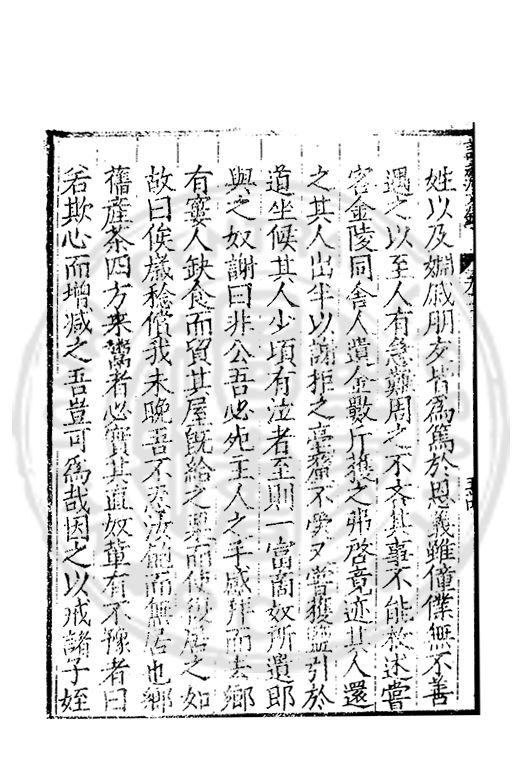 姓以及姻戚朋友皆為篤於恩義雖僮僕無不善
遇之以至人有急難周之不吝其事不能殺述嘗
客金陵同舍人遺金數斤獲之弗啓竟迹其人還
之其人出半以謝拒之毫釐不受又嘗獲鹽引於
道坐候其人少頃有泣者至則一富商奴所遺即
與之奴謝曰非公吾必死主人之手感拜而去鄉
有寠人缺食而貿其屋既給之粟而使復居之如
故曰俟歲稔償我未晚吾不忍汝飽而無居也鄉
舊產茶四方來鬻者必實其直奴輩有不豫者曰
若欺心而增減之吾豈可為哉因之以戒諸子姪